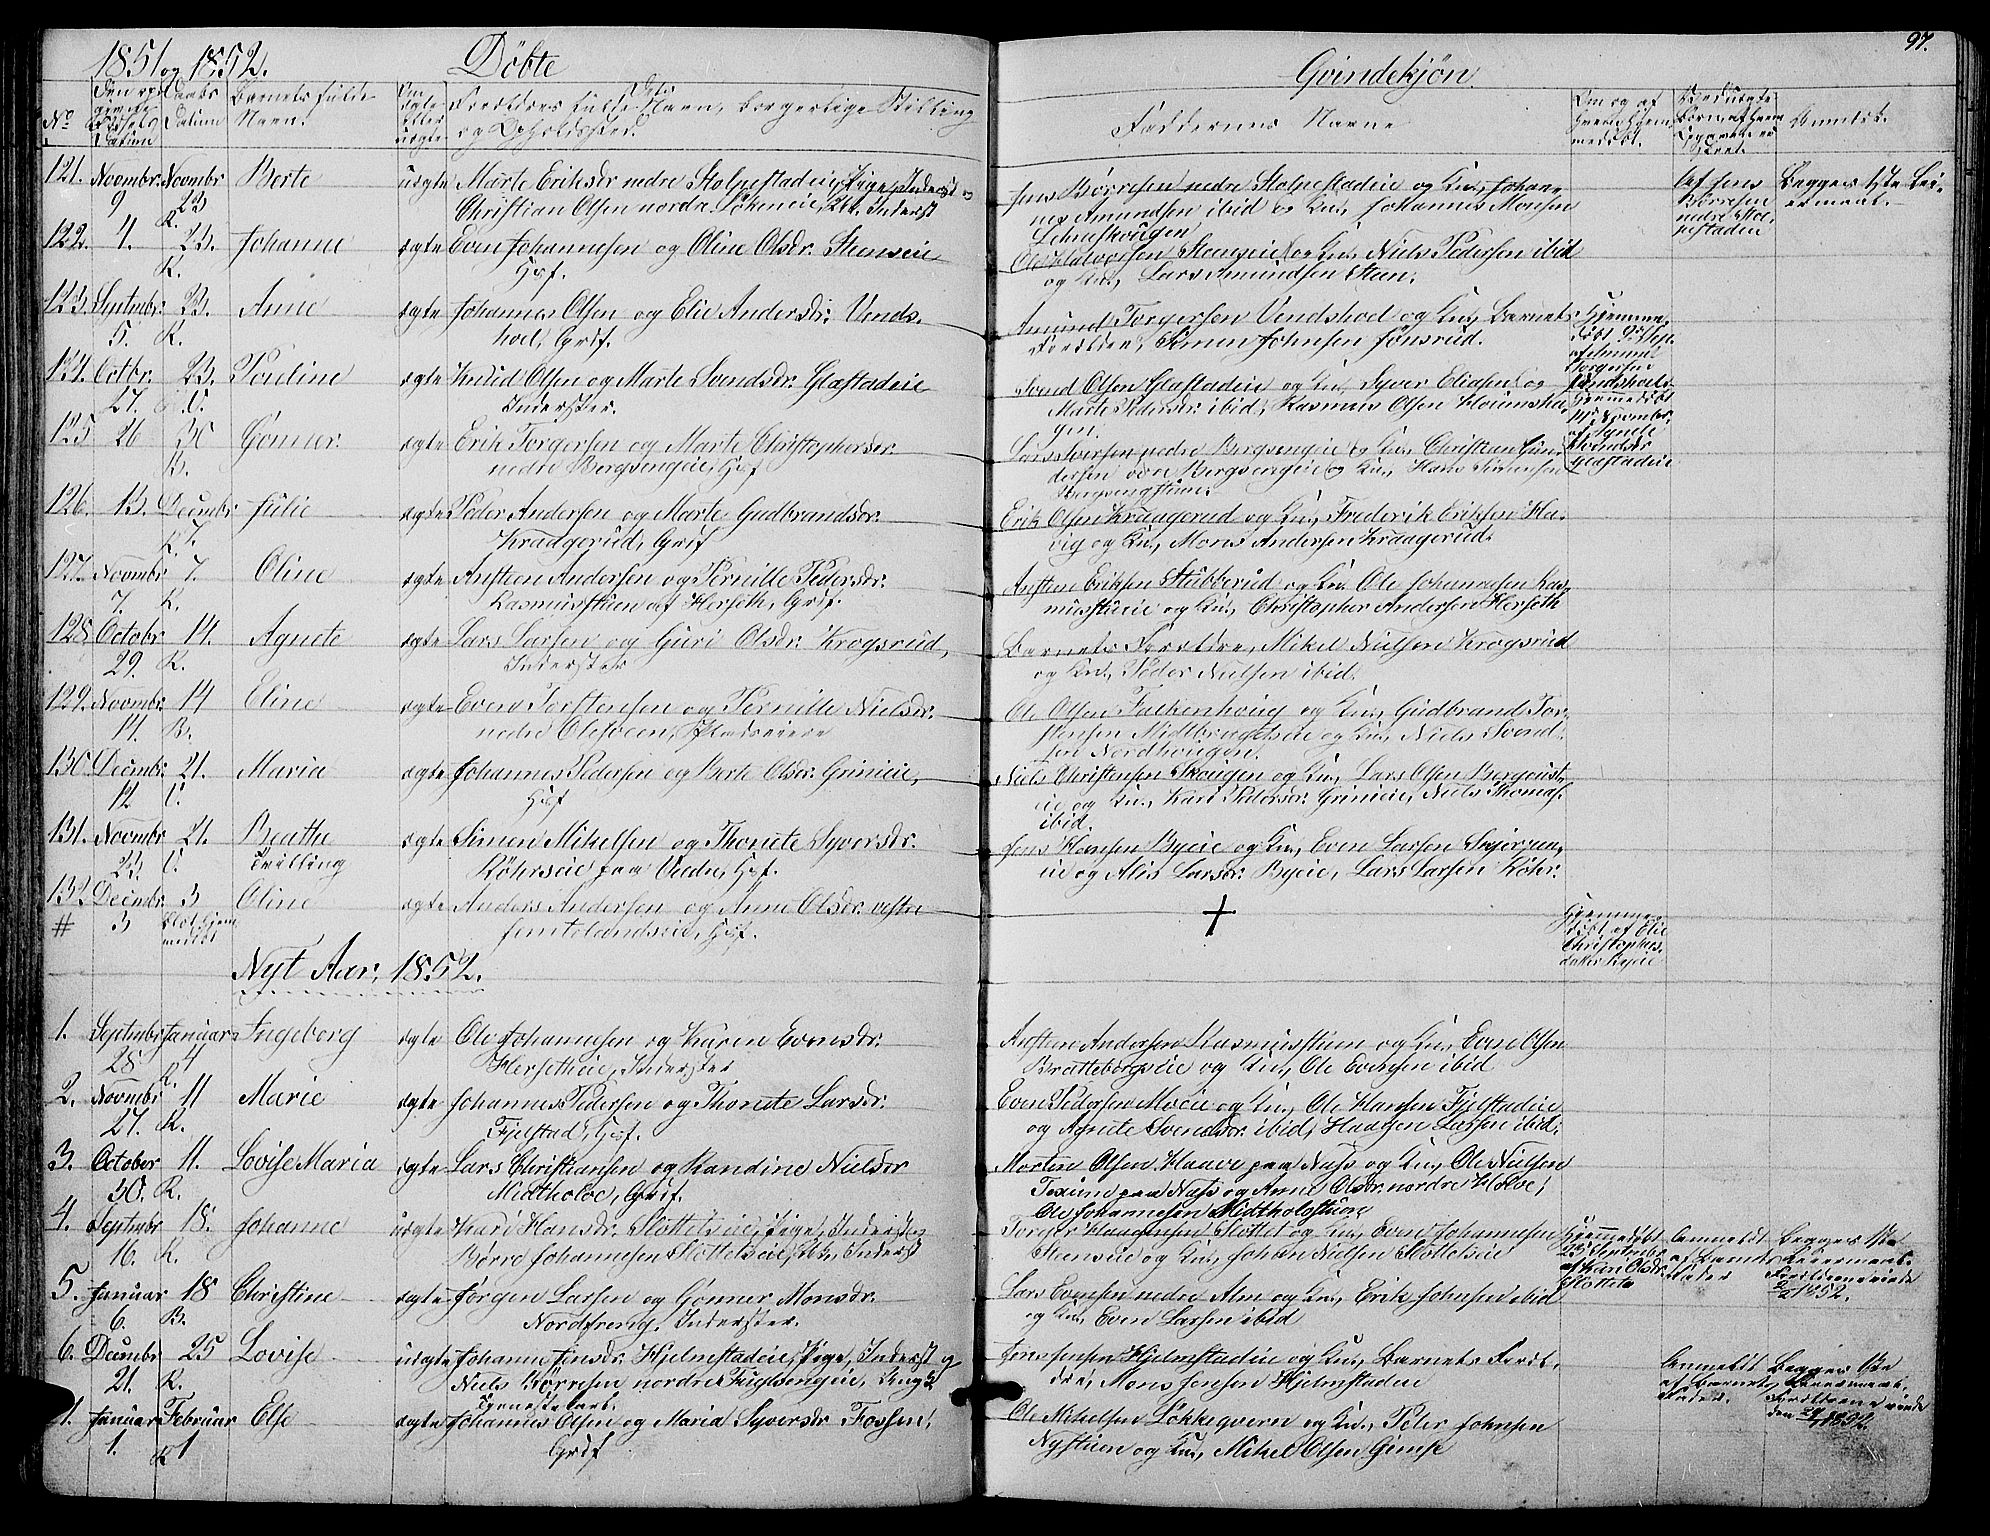 1851 og 1852. Døbte
Qvindekjøn. 97.
No
Datum
Daabs Datum
Barnets fulde Navn.
Forældres fulde Navn, borgerlige Stilling
og Opholdssted.
Faddernes Navne
Anmærk.
121. Novmbr. 9 Novmbr 23 K. Berte uægte Marte Eriksdr nedre Stolpestadeie, Pige, Inderst og
Christian Olsen nordre Inderst
Jens Børresen nedre Stolpestadeie og Kn., Johan-
nes Amundsen ibid og Kn., Johannes Monsen
Af Jens
Børresen
nedre Stol-
pestadeie
Begges 1ste Lei-
ermaal.
122. 4. 23. K. Johanne ægte Even Johannesen og Oline Olsdr. Stenseie
Husf.
Ole Halvorsen Stenseie og Kn., Niels Pedersen ibid
og Kn., Lars Amundsen Steen.
123. Septmbr. 5. 23. K. Anne ægte Johannes Olsen og Elie Andersdr. Vends-
hoel, Grdf.
Amund Torgersen Vendshoel og Kn., Barnets
Forældre, Simen Johnsen Jønsrud.
Hjemme-
døbt 9de Sept.
af Amund
Torgersen
Vendshoel
124. Octbr. 27. 23. Pouline ægte Knud Olsen og Marte Svendsdr. Glæstadeie
Inderster.
Svend Olsen Glæstadeie og Kn., Syver Eliasen og
Marte Pedersdr. ibid, Rasmus Olsen
Hjemmedøbt
Novmbr.
af Agnete
Svendsdr
Glæstadeie
125 26 30 B. Gonner ægte Erik Torgersen og Marte Christophersdr.
nedre Bergsengeie, Husf
Lars Iversen nedre Bergsengeie og Kn., Christian Gun-
dersen øvre Bergsengeie og Kn., Hans
126. 13. Decmbr 7. K. Julie ægte Peder Andersen og Marte Gudbrandsdr.
Kraagerud, Grdf
Erik Olsen Kraagerud og Kn., Frederik Eriksen Ha-
vig og Kn., Mons Andersen Kraagerud.
127. Novmbr 7. 7. K. Oline ægte Ansteen Andersen og Pernille Pedersdr.
Rasmusstuen af Herseth, Grdf.
Ansten Eriksen Stubberud og Kn. Ole Johannesen Ras-
musstueie og Kn., Christopher Andersen Herseth
128. Octobr 29. 14. K. Agnete ægte Lars Larsen og Guri Olsdr. Krogsrud,
Inderster
Barnets Forældre, Mikel Nielsen Krogsrud
og Kn., Peder Nielsen ibid.
129. Novmbr. 14. 14 B. Eline ægte Even Torstensen og Pernille Nielsdr.
nedre Olesveen, Pladseiere
Ole Olsen Falkenhoug og Kn., Gudbrand Tor-
stensen og Kn., Niels Svend-
sen Nordhougen.
130 Decmbr. 12 21. Maria ægte Johannes Pedersen og Berte Olsdr. Grinieie,
Husf
Niels Christensen Skougen og Kn., Lars Olsen
og Kn., Kari Pedersdr. Grinieie, Niels Thomas.
ibid.
131. Novmbr 23. 21. Beathe Tvilling ægte Simen Mikelsen og Thorete Syversdr.
Røhrseie paa Viedn, Husf.
Jens Hansen Byeie og Kn., Even Larsen
og Alis Larsdr. Byeie, Lars Larsen Røhr.
132 # Decmbr. 3 3 Blot hjem-
medøbt Oline ægte Anders Andersen og Anne Olsdr. vestre
Jemtelandseie, Husf.
+
Hjemme-
døbt af Elie
Christophers-
datter Byeie
Nyt Aar, 1852.
1. Septmbr 28. Januar 4 K. Ingeborg ægte Ole Johannesen og Karen Evensdr.
Hersetheie, Inderster
Ansteen Andersen Rasmusstuen og Kn., Even Olsen
Bratteborgseie og Kn., Ole Evensen ibid
2. Novmbr 27. 11 K. Marie ægte Johannes Pedersen og Thorete Larsdr.
Fjelstad, Husf.
Even Pedersen Moeie og Kn., Ole Hansen Fjelstadeie
og Agnete Svensdr. ibid, Larsen ibid.
3. October 30. 11. K. Lovise Maria ægte Lars Christiansen og Randine Nielsdr
Midtholoe, Grdf.
Morten Olsen Haave paa Næss og Kn., Ole Nielsen
paa Næss og Anne Olsdr. nordre Holoe,
Ole Johannesen Midtholostuen
4. Septmbr 16. 18. K. Johanne uægte Kari Hansdr. Slotteteie, Pige, Inderst og
Børre Johannesen Slotteteie, Inderst
Torger Haagensen Slottet og Kn., Even Johannesen
Stenseie og Kn., Johan Nielsen Slotteteie
Hjemmedøbt
23de Septmbr
af Kari Olsdr.
Slottete
Anmeldt
af Barnets
Fader
Begges 1ste
Leiermaal.
Forældrene viede
1852.
5. Januar 6. 18 B. Christine ægte Jørgen Larsen og Gonner Monsdr.
Nordfreng, Inderster.
Lars Evensen nedre Alm og Kn., Erik Johnsen ibid
og Kn., Even Larsen ibid
6. Decmbr 21. 25 K. Lovise uægte Johanne Jensdr. Hjelmstadeie, Pige, Inderst og
Niels Børresen nordre Kuglsengeie, Ungk.
Tjenestekarl.
Jens Jensen Hjelmstadeie og Kn., Barnets Foræl-
dre, Mons Jensen Hjelmstadeie
Anmeldt
af Barnets
Fader.
Begges 1ste
Leiermaal.
Forældrene viede
den 1852.
1. Januar 1. Februar 1 K Else ægte Johannes Olsen og Maria Syversdr Fossen,
Grdf
Ole Mikelsen Løkkeqvern og Kn., Peter Johnsen
Nystuen og Kn., Mikel Olsen Gimse